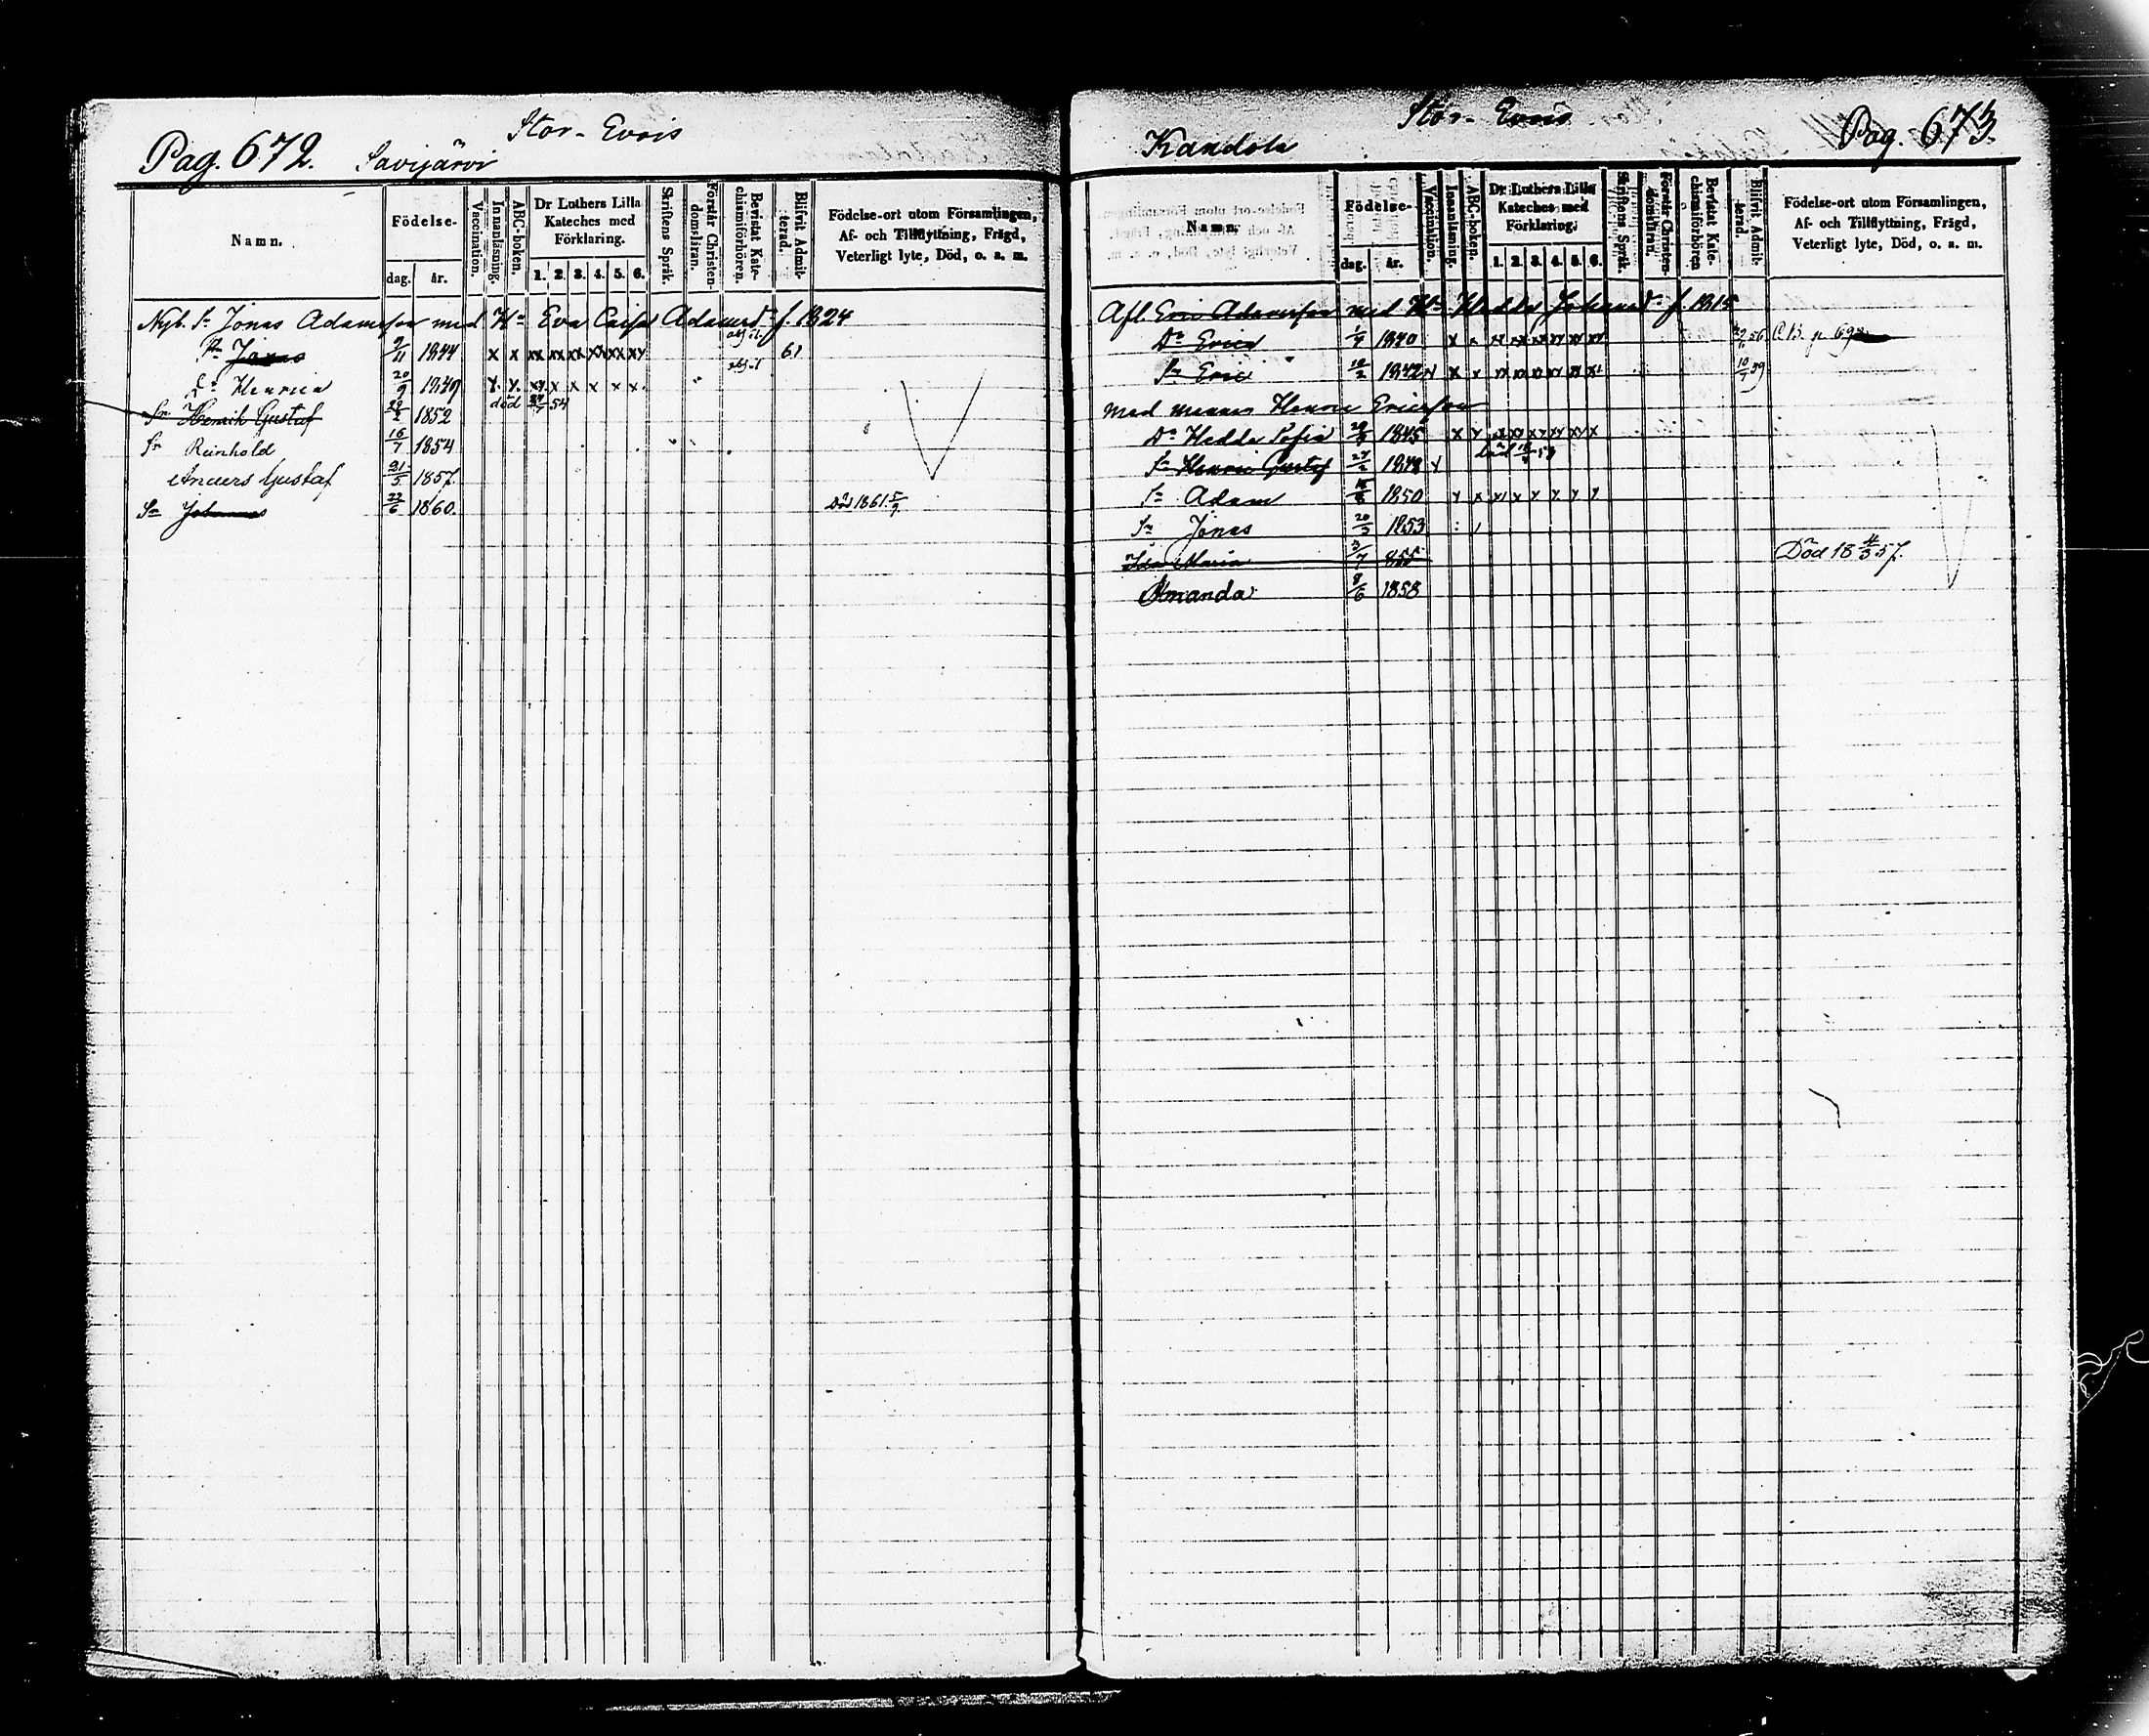 Pag. 672. Stor-Evois
Savijärvi
Namn. Födelse- dag. år. Vaccination. Innanläsning. ABC-boken. Dr Luthers Lilla Kateches med Förklaring. 1. 2. 3. 4. 5. 6. Skriftens Språk. Förstår Christendomsläran. Bevistat Katechismiförhören. Blifvit Admitterad. Födelse-ort utom Församlingen, Af- och Tillflyttning, Frägd, Veterligt lyte, Död, o. s. m.
Nyb. Sn Jonas Adamsson med Hu Eva Caisa Adamsdr f. 1824
Sn Jonas 9/11 1844 x x xx xx xx xx xx xy 61
Dr Henrica 20/9 1849 x. x. xy x x x x x
död 54
Sn Henrik Gustaf 1852
Sn Reinhold 16/7 1854
Anders Gustaf 21/5 1857.
Sn Johannes 22/6 1860. Död 1861 5/9
Stor-Evois Pag. 673.
Kandola
Namn. Födelse- dag. år. Vaccination. Innanläsning. ABC-boken. Dr Luthers Lilla Kateches med Förklaring. 1. 2. 3. 4. 5. 6. Skriftens Språk. Förstår Christendomsläran. Bevistat Katechismiförhören Blifvit Admitterad. Födelse-ort utom Församlingen, Af- och Tillflyttning, Frägd, Veterligt lyte, Död, o. s. m.
Afl. Eric Adamsson med Hu Hedda Johansdr f. 1815
Dr Erica 1/4 1840 x x xx xx xx xy xx xy 56 C.B. p.
Sn Eric 12/2 1842 x x x xx xx xx xx xx xx 10/7 59
med mannen Henric Ericsson
Dr Hedda Sofia 1845 x y x xy xy xy xy x
Sn Henric Gustaf 27/2 1848 y död
Sn Adam 1850 y x x x y y y y
Sn Jonas 20/3 1853
Ida Maria 3/7 855 Död 18 4/3 57.
Amanda 8/6 1858